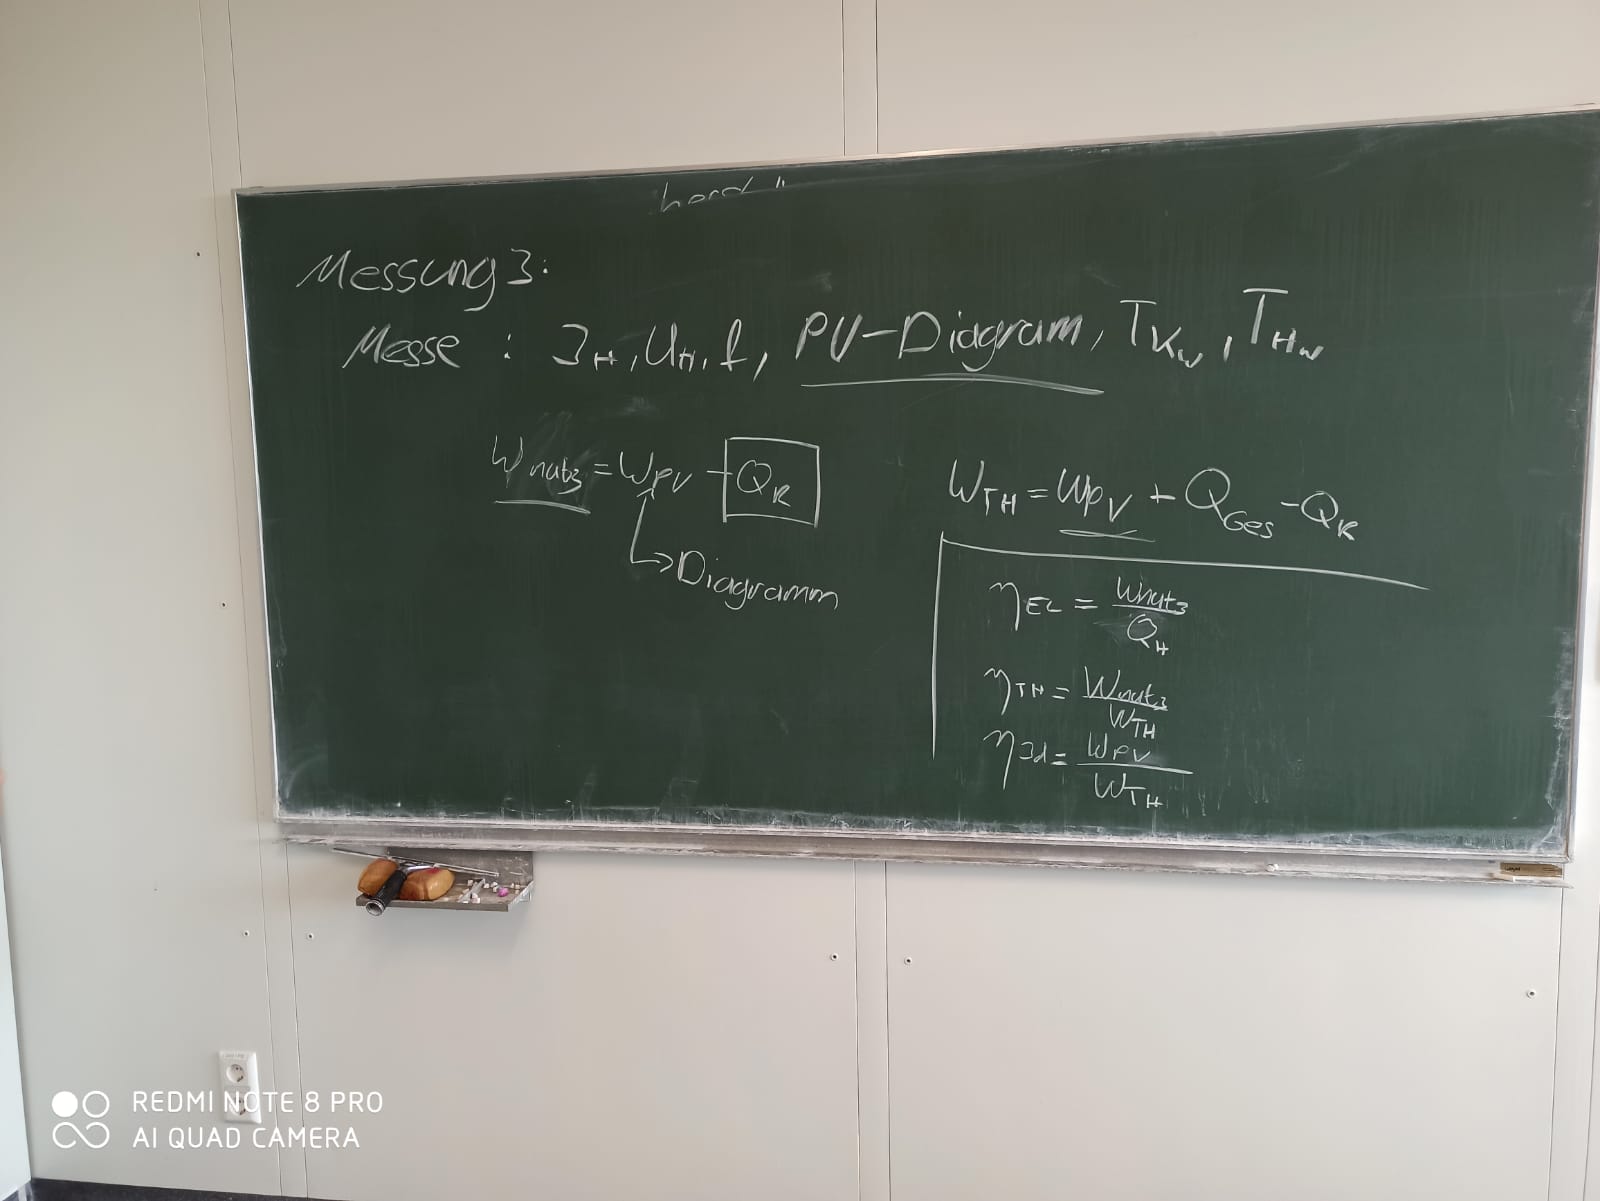 Messung 3:
Messe : I_H, U_H, f, PV-Diagram, T_Kw, T_Hw
W_nutz = W_PV - Q_R
Diagramm
W_TH = W_PV + Q_Ges - Q_R
η_EL = W_nutz / Q_H
η_TH = W_nutz / W_TH
η_Id = W_PV / W_TH
REDMI NOTE 8 PRO
AI QUAD CAMERA